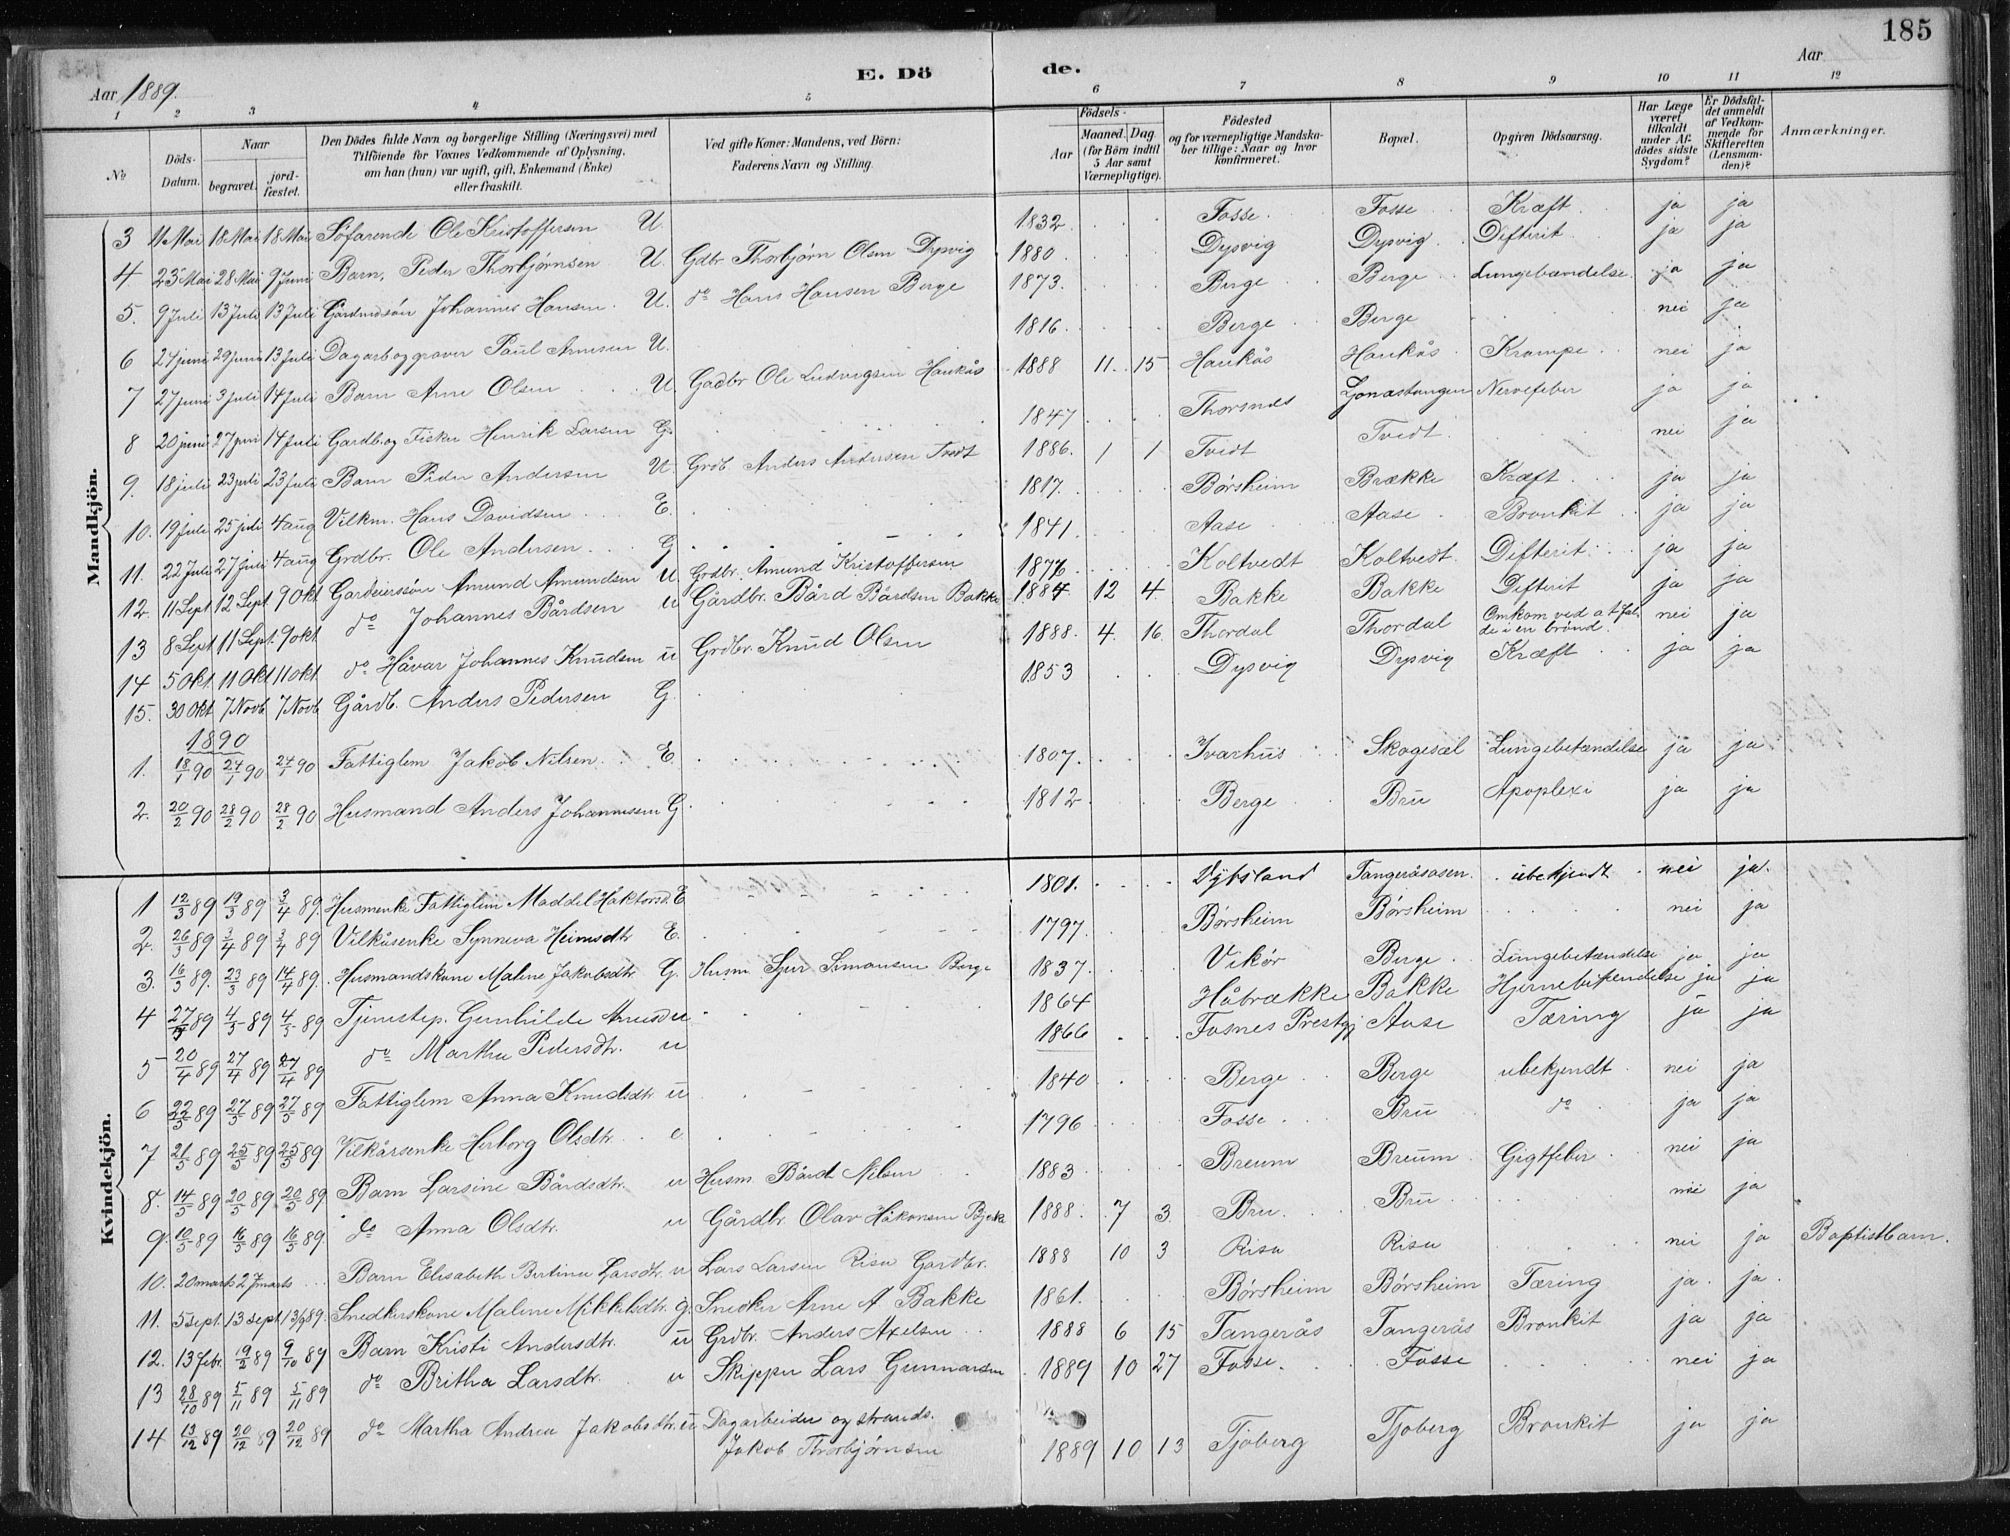 185
Aar 1889.
E. Dö de.
Aar
1 2 3 4 5 6 7 8 9 10 11 12
№
Döds-Datum.
Naar begravet. jordfæstet.
Den Dödes fulde Navn og borgerlige Stilling (Næringsvei) med Tilföiende for Voxnes Vedkommende af Oplysning, om han (hun) var ugift, gift, Enkemand (Enke) eller fraskilt.
Ved gifte Koner: Mandens, ved Börn: Faderens Navn og Stilling.
Födsels- Aar Maaned. Dag (for Börn indtil 5 Aar samt Værnepligtige).
Födested og for værnepligtige Mandskaber tillige: Naar og hvor konfirmeret.
Bopæl.
Opgiven Dödsaarsag.
Har Læge været tilkaldt under Afdödes sidste Sygdom?
Er Dödsfaldet anmeldt af Vedkommende for Skifteretten (Lensmanden)?
Anmærkninger.
Mandkjön.
3 11 Mai 18 Mai 18 Mai Söfarende Ole Kristoffersen U. 1832 Fosse Fosse Kræft ja ja
4 23 Mai 28 Mai 9 Juni Barn, Peder Thorbjørnsen U. Gdbr. Thorbjørn Olsen Dysvig 1880 Dysvig Dysvig Difterit ja ja
5. 9 Juli 13 Juli 13 Juli Gårdmdsön Johannes Hansen U. do Hans Hansen Berge 1873 Berge Berge Lungebændelse ja ja
6 24 juni 29 juni 13 Juli Dagarb og graver Paul Arnesen U. 1816 Berge Berge nei ja
7 27 juni 3 juli 14 Juli Barn Arne Olsen U. Gadbr Ole Ludvigsen Haukås 1888 11 15 Haukås Haukås Krampe nei ja
8 20 juni 27 juni 14 Juli Gardb. og Fisker Henrik Larsen G. 1847 Thorsnes Nervefeber ja ja
9. 18 juli 23 juli 23 Juli Barn Peder Andersen U. Grdb. Anders Andersen Tvedt 1886 1 1 Tvedt Tvedt nei ja
10. 19 Juli 25 juli 4 aug Vilkm. Hans Davidsen E. 1817 Børsheim Brække Kræft ja ja
11. 22 Juli 27 Juli 4 aug Grdbr. Ole Andersen G 1841 Aase Aase Bronkit ja ja
12. 11 Sept 12 Sept 9 Okt Gardeierssön Amund Amundsen u Grdbr. Amund Kristoffersen 1876 Koltvedt Koltvedt Difterit ja ja
13 8 Sept 11 Sept. 9 okt do Johannes Bårdsen u Gårdbr. Bård Bårdsen Bakke 1884 12 4 Bakke Bakke Difterit ja ja
14 5 Okt. 11 Okt 11 okt do Håvar Johannes Knudsen u Grdbr. Knud Olsen 1888 4 16 Thordal Thordal Omkom ved at falde i en brönd. nei ja
15. 30 Okt 7 Novb 7 Novb Gårdb. Anders Pedersen G. 1853 Dysvig Dysvig Kræft ja ja
1890
1. 18/1 90 24/1 90 24/1 90 Fattiglem Jakob Nilsen E. 1807 Ivarhus Skogesæl Lungebetændelse ja ja
2. 20/2 90 28/2 90 28/2 90 Husmand Anders Johannessen G. 1812 Berge Bru Apoplexi ja ja
Kvindekjön.
1 12/3 89 19/3 89 3/4 89. Husmenke Fattiglem Maddel Håktorsd. E 1801. Dybsland Tangeråsasen ubekjendt nei ja.
2. 26/3 89 3/4 89 3/4 89 Vilkåsenke Synneva Heimsdtr E. 1797 Børsheim Børsheim nei ja
3. 16/3 89. 23/3 89 14/4 89. Husmandskone Malene Jakobsdtr. G. Husm. Sjur Simonsen Berge 1837 Vikør Berge Lungebetændelse ja ja
4 27/3 89 4/5 89 4/5 89 Tjenestep. Gunhilde u 1864 Håbrække Bakke Hjernebetændelse ja ja
5 20/4 89 27/4 89 27/4 89 do Martha Pedersdtr. u 1866 Fosnes Prestgj Aase Tæring ja ja
6 22/5 89 27/5 89 27/5 89 Fattiglem Anna Knudsdtr u 1840 Berge Berge ubekjendt nei ja
7 21/5 89 25/5 89 25/5 89 Vilkårsenke Herborg Olsdtr. e. 1796 Fosse Bru do ja ja
8. 14/5 89 20/5 89 20/5 89 Barn Larsine Bårdsdtr. u Husm. Bård Nilsen 1883 Breum Breum Gigtfeber nei ja
9. 10/5 89 16/5 89 16/5 89. do Anna Olsdtr. u Gårdbr. Olav Håkonsen 1888 7 3 Bru Bru nei ja
10. 20 marts 27 marts Barn Elisabeth Bertine Larsdtr. u Lars Larsen Risa Gardbr. 1888 10 3 Risa Risa nei ja Baptistbarn.
11. 5 sept. 13 sept 13/9 89. Snedkerskone Malene Mikkelsdtr. g. Snedker Arne A Bakke 1861. Børsheim Børsheim Tæring ja ja
12. 13 febr. 19/2 89 9/10 89 Barn Kristi Andersdtr. u Grdbr. Anders Axelsen 1888 6 15 Tangerås Tangerås Bronkit ja ja
13 28/10 89 5/11 89 5/11 89 do Britha Larsdtr. u Skipper Lars Gunnarsen 1889 10 27 Fosse Fosse nei ja
14 13/12 89 20/12 89 20/12 89 do Martha Andrea Jakobsdtr. u Dagarbeider og strands. Jakob Thorbjørnsen 1889 10 13 Tjoberg Tjoberg Bronkit ja ja